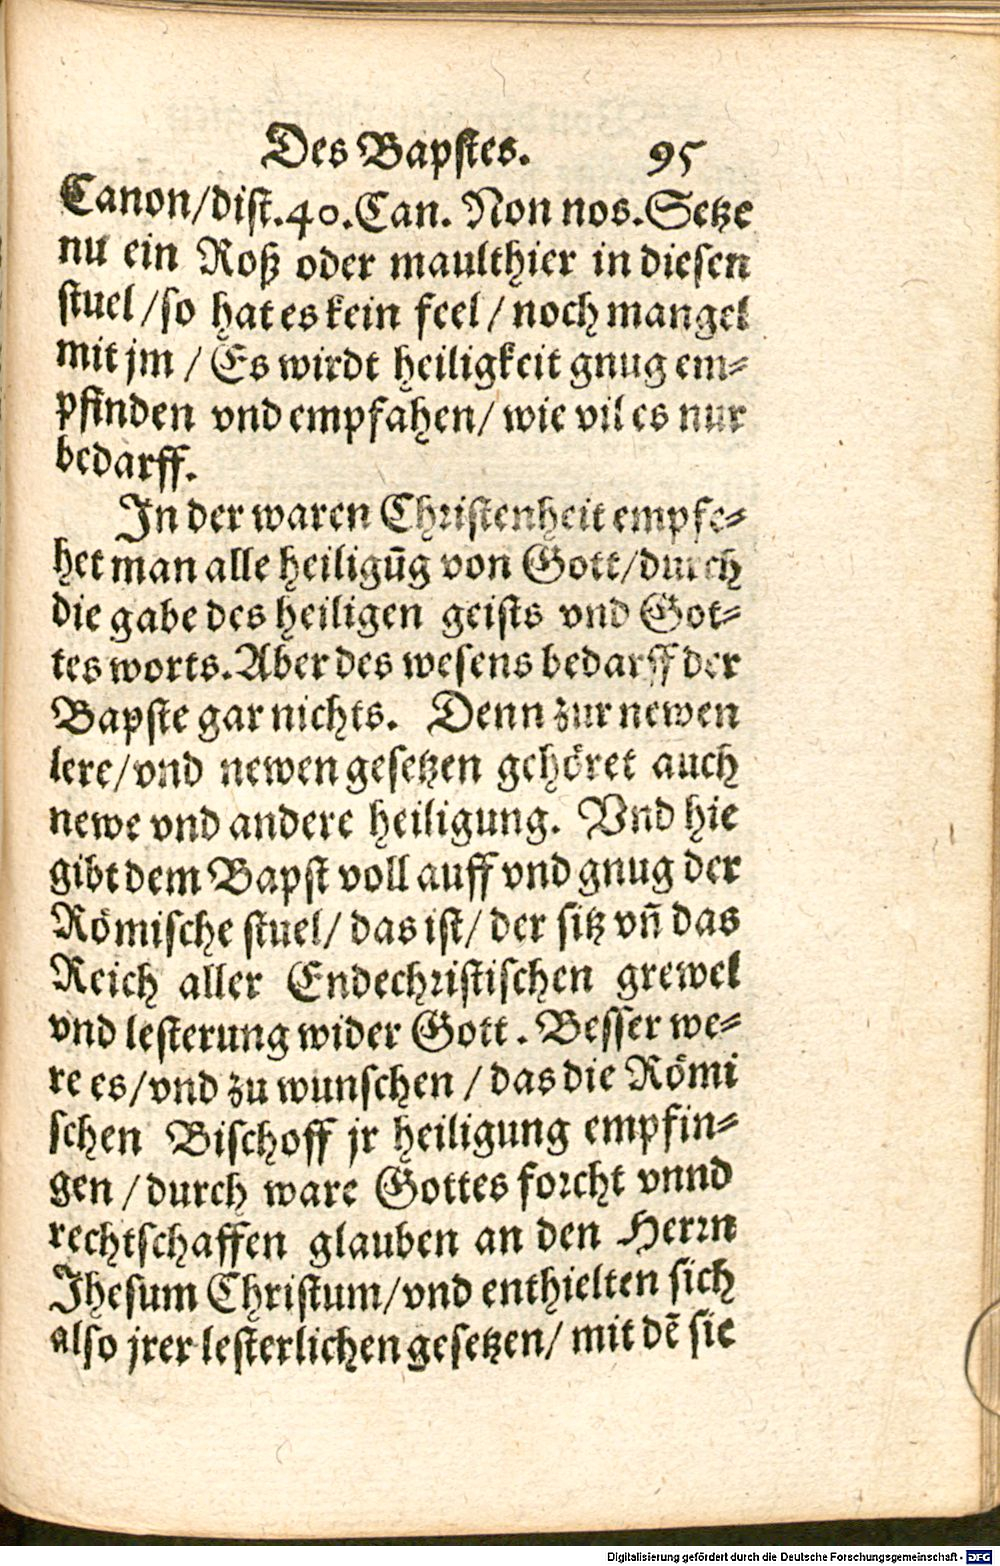 Des Bapstes. 95
Canon/dist.40.Can. Non nos. Setze
nu ein Roß oder maulthier in diesen
stuel/so hat es kein feel/noch mangel
mit jm/Es wirdt heiligkeit gnug em-
pfinden vnd empfahen/wie vil es nur
bedarff.
In der waren Christenheit empfe-
het man alle heiligūg von Gott/durch
die gabe des heiligen geists vnd Got-
tes worts. Aber des wesens bedarff der
Bapste gar nichts. Denn zur newen
lere/vnd newen gesetzen gehöret auch
newe vnd andere heiligung. Vnd hie
gibt dem Bapst voll auff vnd gnug der
Römische stuel/das ist/der sitz vñ das
Reich aller Endechristischen grewel
vnd lesterung wider Gott. Besser we-
re es/vnd zu wunschen/das die Römi
schen Bischoff jr heiligung empfin-
gen/durch ware Gottes forcht vnnd
rechtschaffen glauben an den Herrn
Jhesum Christum/vnd enthielten sich
also jrer lesterlichen gesetzen/mit dē sie
Digitalisierung gefördert durch die Deutsche Forschungsgemeinschaft - DFG